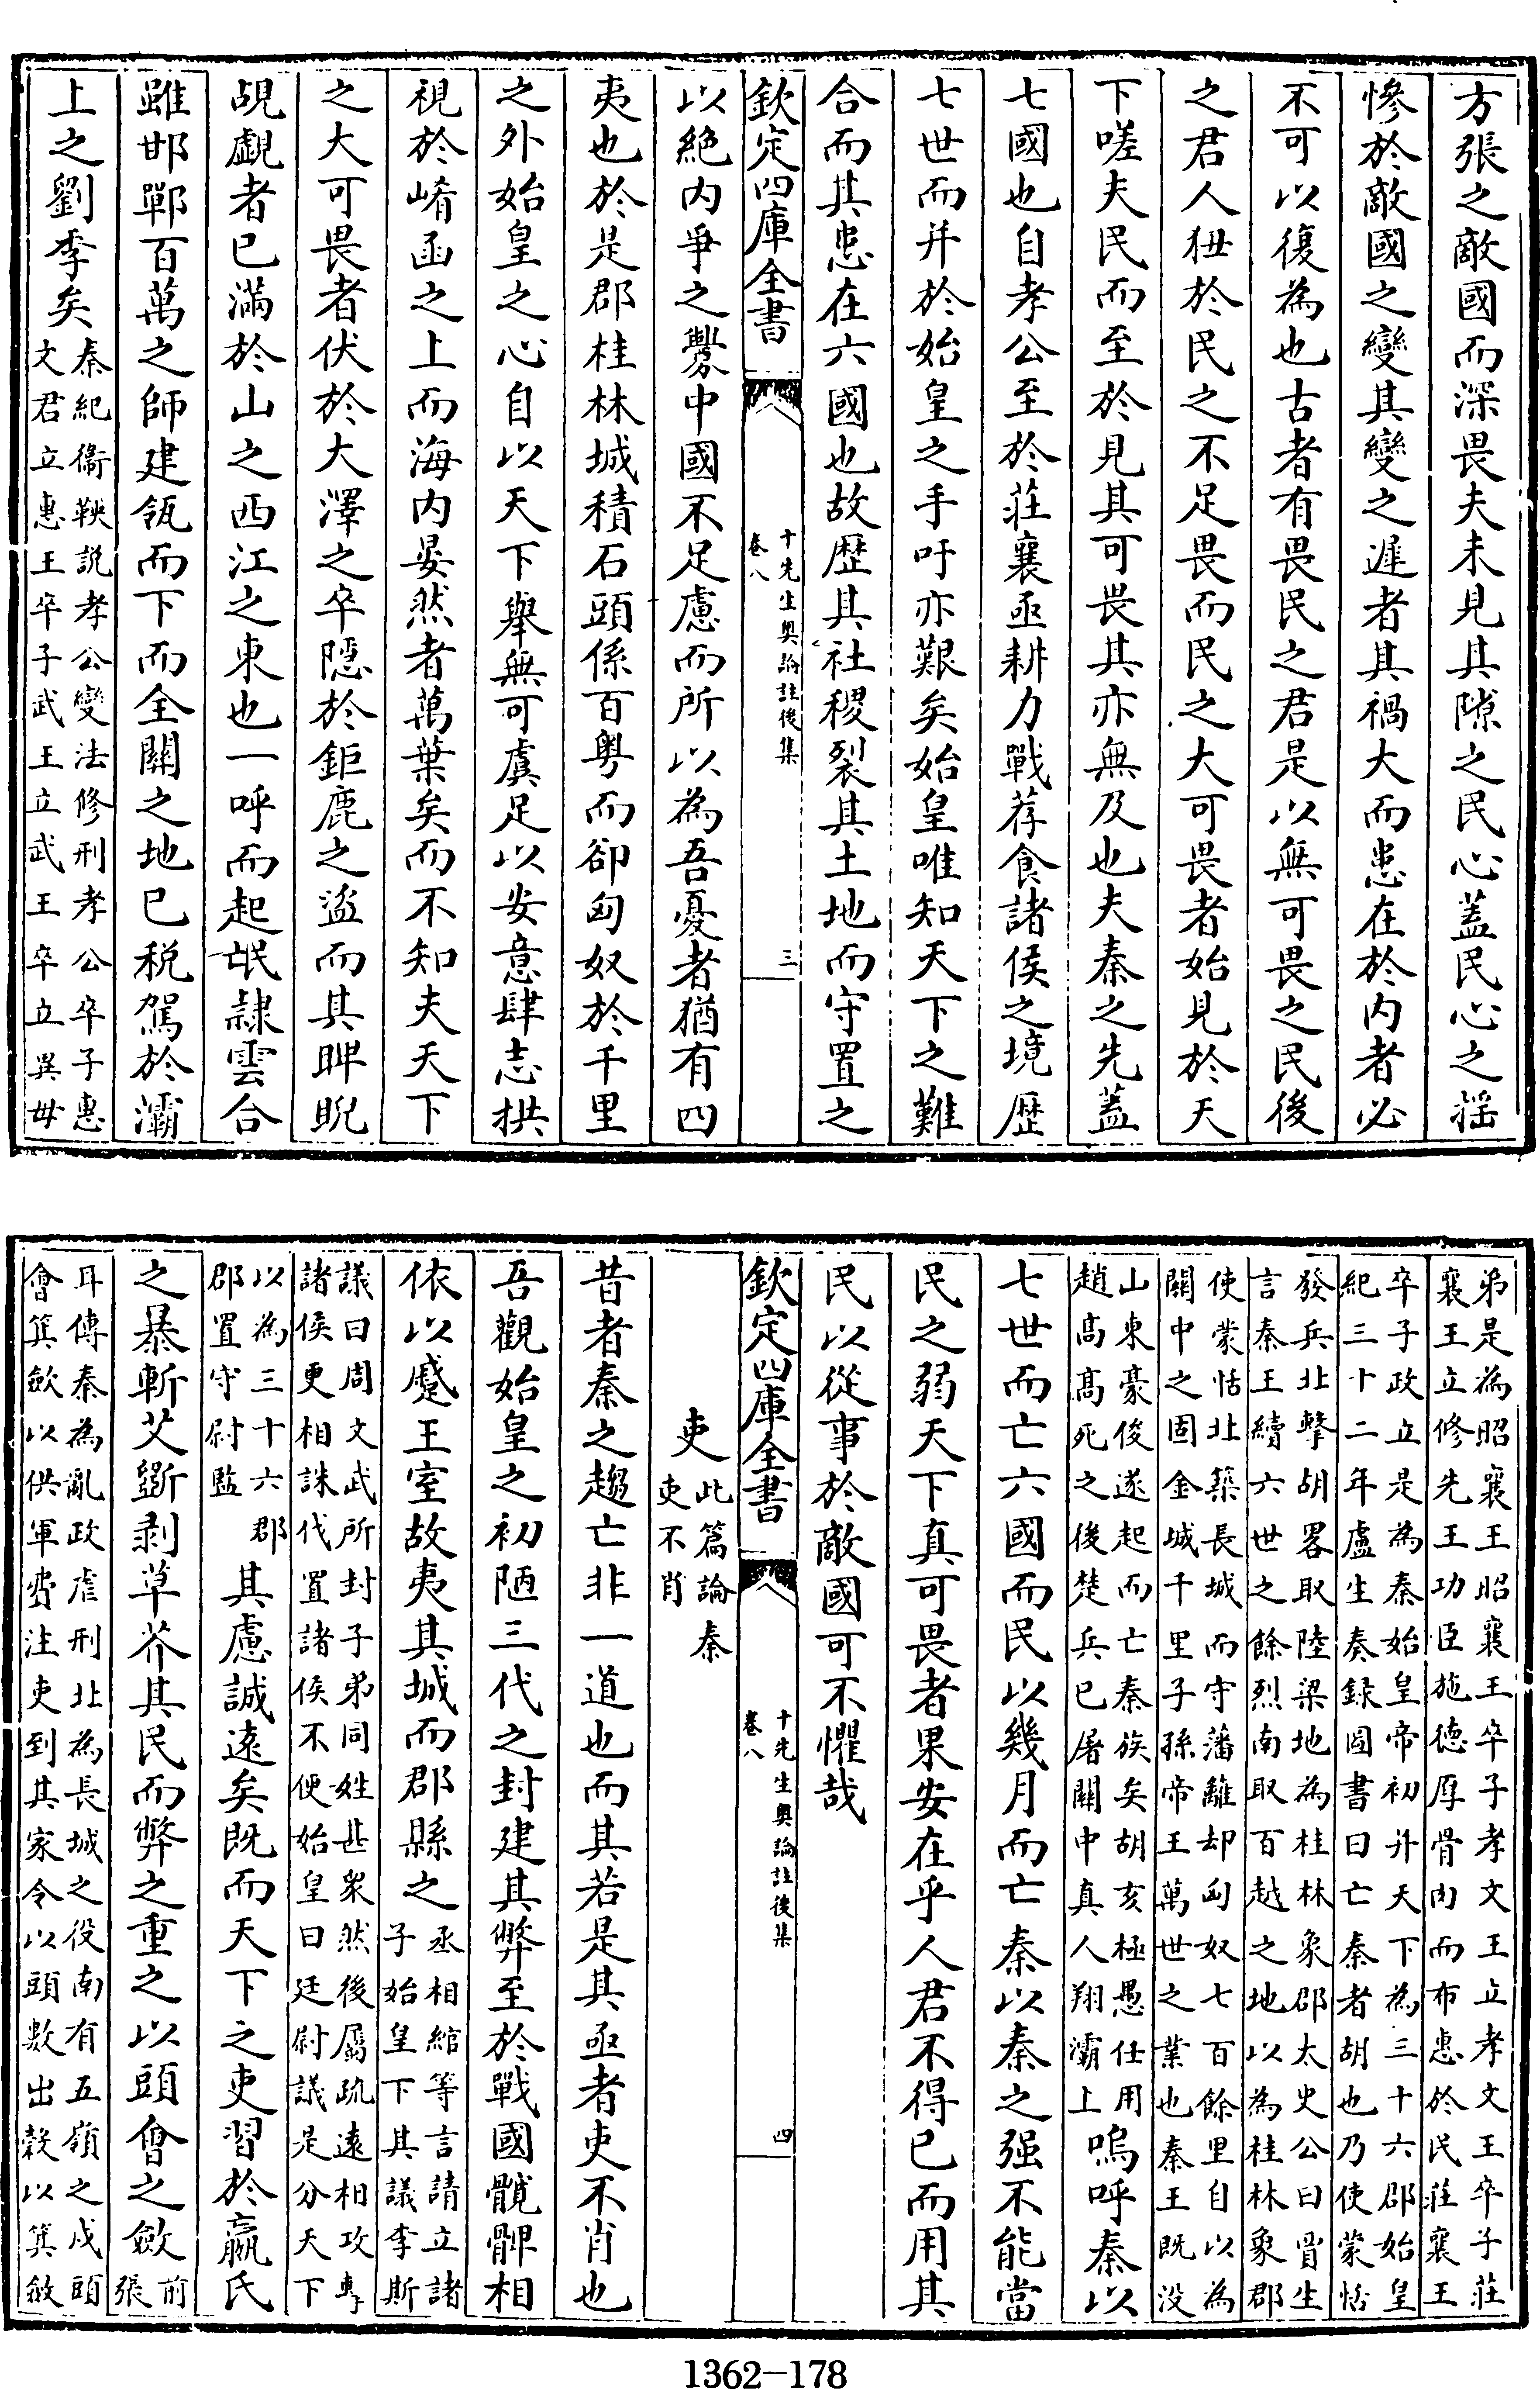 方張之敵國而深畏夫未見其隙之民心蓋民心之揺
慘於敵國之變其變之遲者其禍大而患在於内者必
不可以復為也古者有畏民之君是以無可畏之民後
之君人狃於民之不足畏而民之大可畏者始見於天
下嗟夫民而至於見其可畏其亦無及也夫秦之先蓋
七國也自孝公至於莊襄亟耕力戰荐食諸侯之境歴
七世而并於始皇之手吁亦艱矣始皇唯知天下之難
合而其患在六國也故歴其社稷裂其土地而守置之
欽定四庫全書
十先生奥論註後集
卷八
三
以絶内爭之釁中國不足慮而所以為吾憂者猶有四
夷也於是郡桂林城積石頭係百粤而卻匈奴於千里
之外始皇之心自以天下舉無可虞足以安意肆志拱
視於崤函之上而海内晏然者萬葉矣而不知夫天下
之大可畏者伏於大澤之卒隱於鉅鹿之盜而其睥睨
覘覷者已滿於山之西江之東也一呼而起氓隷雲合
雖邯鄲百萬之師建瓴而下而全關之地已税駕於灞
上之劉季矣
秦紀衞鞅説孝公變法修刑孝公卒子惠
文君立惠王卒子武王立武王卒立異母
弟是為昭襄王昭襄王卒子孝文王立孝文王卒子莊
襄王立修先王功臣施徳厚骨肉而布惠於民莊襄王
卒子政立是為秦始皇帝初并天下為三十六郡始皇
紀三十二年盧生奏録圖書曰亡秦者胡也乃使蒙恬
發兵北擊胡畧取陸梁地為桂林象郡太史公曰賈生
言秦王續六世之餘烈南取百越之地以為桂林象郡
使蒙恬北築長城而守藩籬却匈奴七百餘里自以為
關中之固金城千里子孫帝王萬世之業也秦王既没
山東豪俊遂起而亡秦族矣胡亥極愚任用
趙高高死之後楚兵已屠關中真人翔灞上
嗚呼秦以
七世而亡六國而民以幾月而亡秦以秦之强不能當
民之弱天下真可畏者果安在乎人君不得已而用其
民以從事於敵國可不懼哉
欽定四庫全書
十先生奥論註後集
卷八
四
吏
此篇論秦
吏不肖
昔者秦之趨亡非一道也而其若是其亟者吏不肖也
吾觀始皇之初陋三代之封建其弊至於戰國髖髀相
依以蹙王室故夷其城而郡縣之
丞相綰等言請立諸
子始皇下其議李斯
議曰周文武所封子弟同姓甚衆然後屬疏遠相攻擊
諸侯更相誅伐置諸侯不便始皇曰廷尉議是分天下
以為三十六郡
郡置守尉監
其慮誠逺矣既而天下之吏習於嬴氏
之暴斬艾斵剥草芥其民而弊之重之以頭會之斂
前
張
耳傳秦為亂政虐刑北為長城之役南有五嶺之戍頭
會箕斂以供軍費注吏到其家令以頭數出榖以箕斂
1362-178